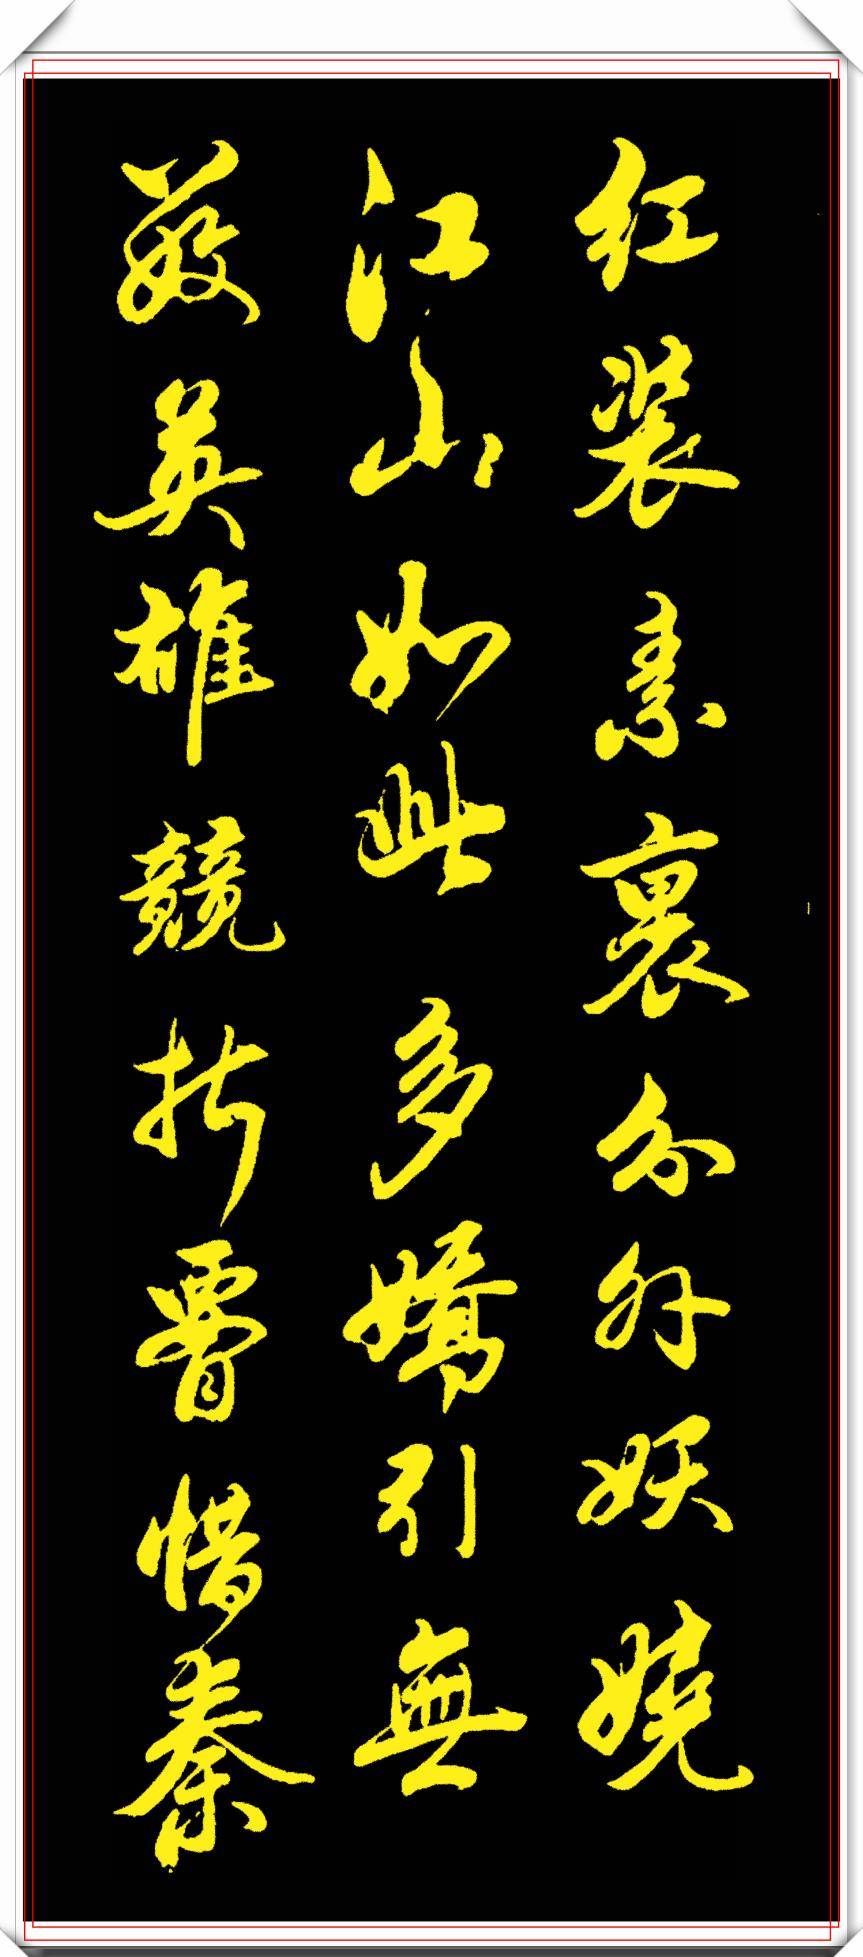 红装素裹分外妖娆
江山如此多嬌引無
数英雄競折腰惜秦